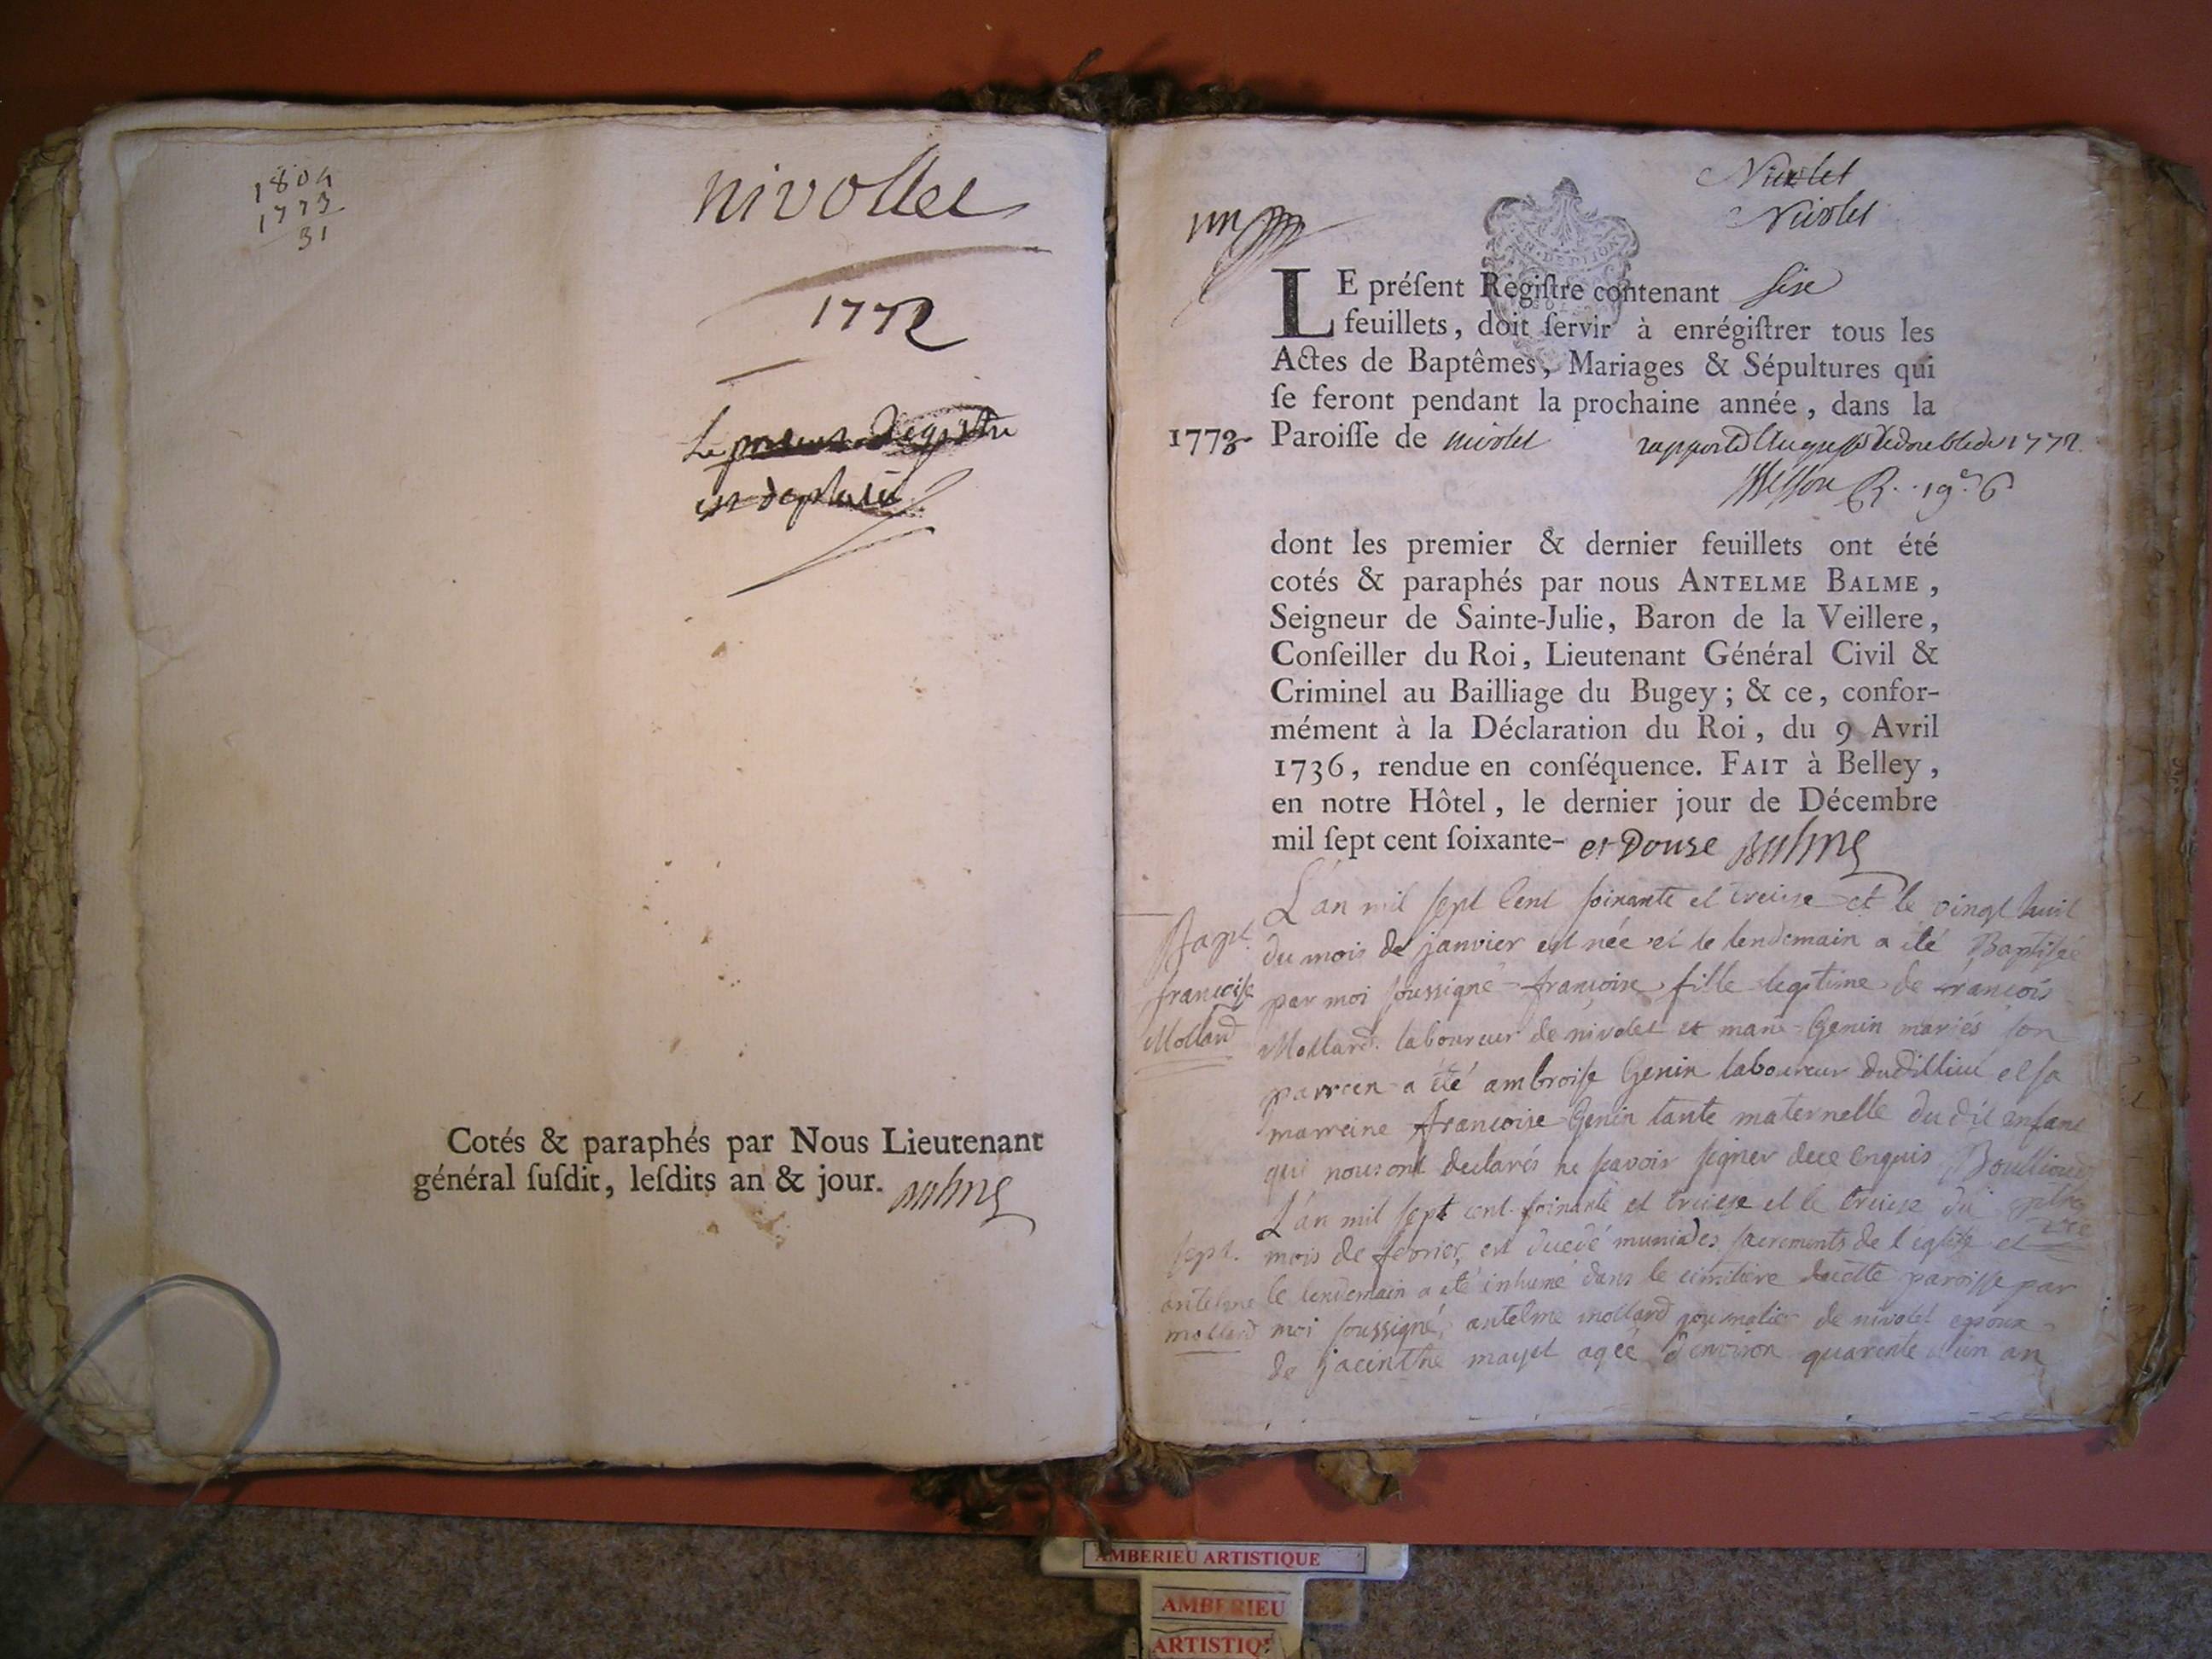 1804
1773
31
nivollet
1772
Le
est
Cotés & paraphés par Nous Lieutenant
général ſuſdit, leſdits an & jour. Balme
Nivolet
Nivolet
un
LE préſent Regiſtre contenant ſixe
feuillets, doit ſervir à enrégiſtrer tous les
Actes de Baptêmes, Mariages & Sépultures qui
ſe feront pendant la prochaine année, dans la
1773 Paroiſſe de nivolet rapporté 1772
dont les premier & dernier feuillets ont été
cotés & paraphés par nous ANTELME BALME,
Seigneur de Sainte-Julie, Baron de la Veillere,
Conſeiller du Roi, Lieutenant Général Civil &
Criminel au Bailliage du Bugey; & ce, confor-
mément à la Déclaration du Roi, du 9 Avril
1736, rendue en conſéquence. FAIT à Belley,
en notre Hôtel, le dernier jour de Décembre
mil ſept cent ſoixante- et Douse Balme
L'an mil sept cent soixante et treize et le vingt huit
Bapt. du mois de janvier est née et le lendemain a été Baptisée
francoise par moi soussigné francoise fille legitime de francois
Mollard Mollard laboureur de nivolet et marie Genin mariés son
parrein a été ambroise Genin laboureur dudit lieu et sa
marreine francoise Genin tante maternelle du dit enfant
qui nous ont declarés ne scavoir signer de ce enquis Boullioud
L'an mil sept cent soixante et treize et le treize du ptre
sept. mois de fevrier, est decedé muni des sacrements de l'église et vre
antelme le lendemain a été inhumé dans le cimitiere de cette paroisse par
mollard moi soussigné, antelme mollard de nivolet epoux
de jacinthe mayet agée d'environ quarente d'un an
AMBERIEU ARTISTIQUE
AMBERIEU
ARTISTIQ